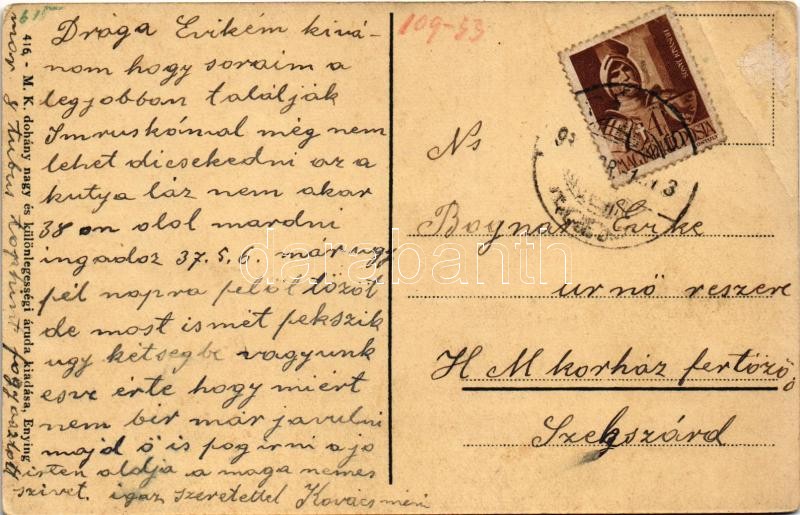 Drága Evikém kivá-
nom hogy soraim a
legjobban találják
Imruskómal még nem
lehet dicsekedni az a
kutya láz nem akar
38 on alol mardni
ingadoz 37.5.6. mar ugy
fél napra felöltözöt
de most ismét fekszik
ugy kétségbe vagyunk
esve érte hogy miért
nem bir már javulni
majd ő is fog irni a jo
isten aldja a maga nemes
szivet. igaz szeretettel Kovácsmeni
mar 8 tubus fogyasztott
416. - M. K. dohány nagy és különlegességi áruda kiadása, Enying
109-53
Ns
Boynár Evike
urnő reszere
H M korház fertőző
Szekszárd
darabanth